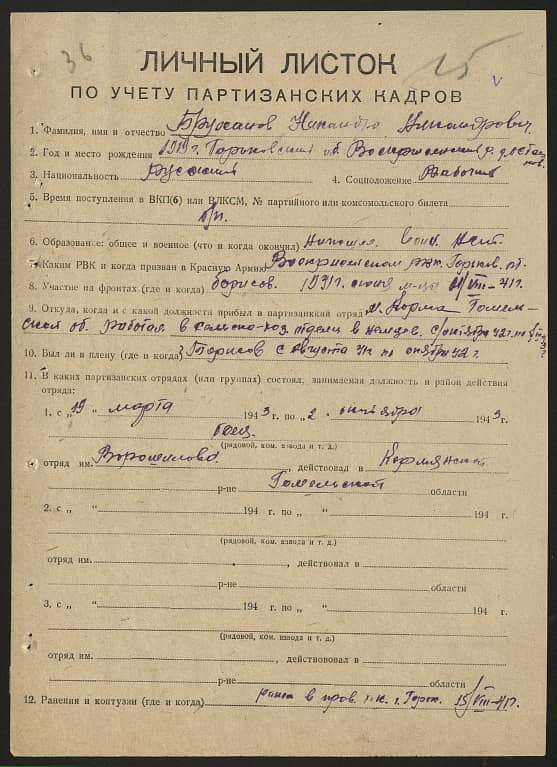 36
15
v
ЛИЧНЫЙ ЛИСТОК
ПО УЧЕТУ ПАРТИЗАНСКИХ КАДРОВ
1. Фамилия, имя и отчество
2. Год и место рождения 1919 г. Горьковская об.
3. Национальность Русский 4. Соцположение Рабочий
5. Время поступления в ВКП(б) или ВЛКСМ, № партийного или комсомольского билета
б/п.
6. Образование: общее и военное (что и когда окончил) низшее.
7. Каким РВК и когда призван в Красную Армию Горьков.
8. Участие на фронтах (где и когда) борисов. VIII-41г.
9. Откуда, когда и с какой должности прибыл в партизанкий отряд м. Корма Гомель-
ской об. работал в сельско-хоз отделе
10. Был ли в плену (где и когда) Борисов с августа 41 по октября 42 г.
11. В каких партизанских отрядах (или группах) состоял, занимаемая должность и район действия
отряда:
1. с „ 19 “ марта 1943 г. по „ 2 “ октября 1943 г.
боец.
(рядовой, ком. взвода и т. д.)
отряд им. Ворошилова, действовал в Кормянском
р-не Гомельской области
2. с „ “ 194 г. по „ “ 194 г.
(рядовой, ком. взвода и т. д.)
отряд им. , действовал в
р-не области
3. с „ “ 194 г. по „ “ 194 г.
(рядовой, ком. взвода и т. д.)
отряд им. , действовал в
р-не области
12. Ранения и контузии (где и когда) ранен в прав. 15/VIII-41г.